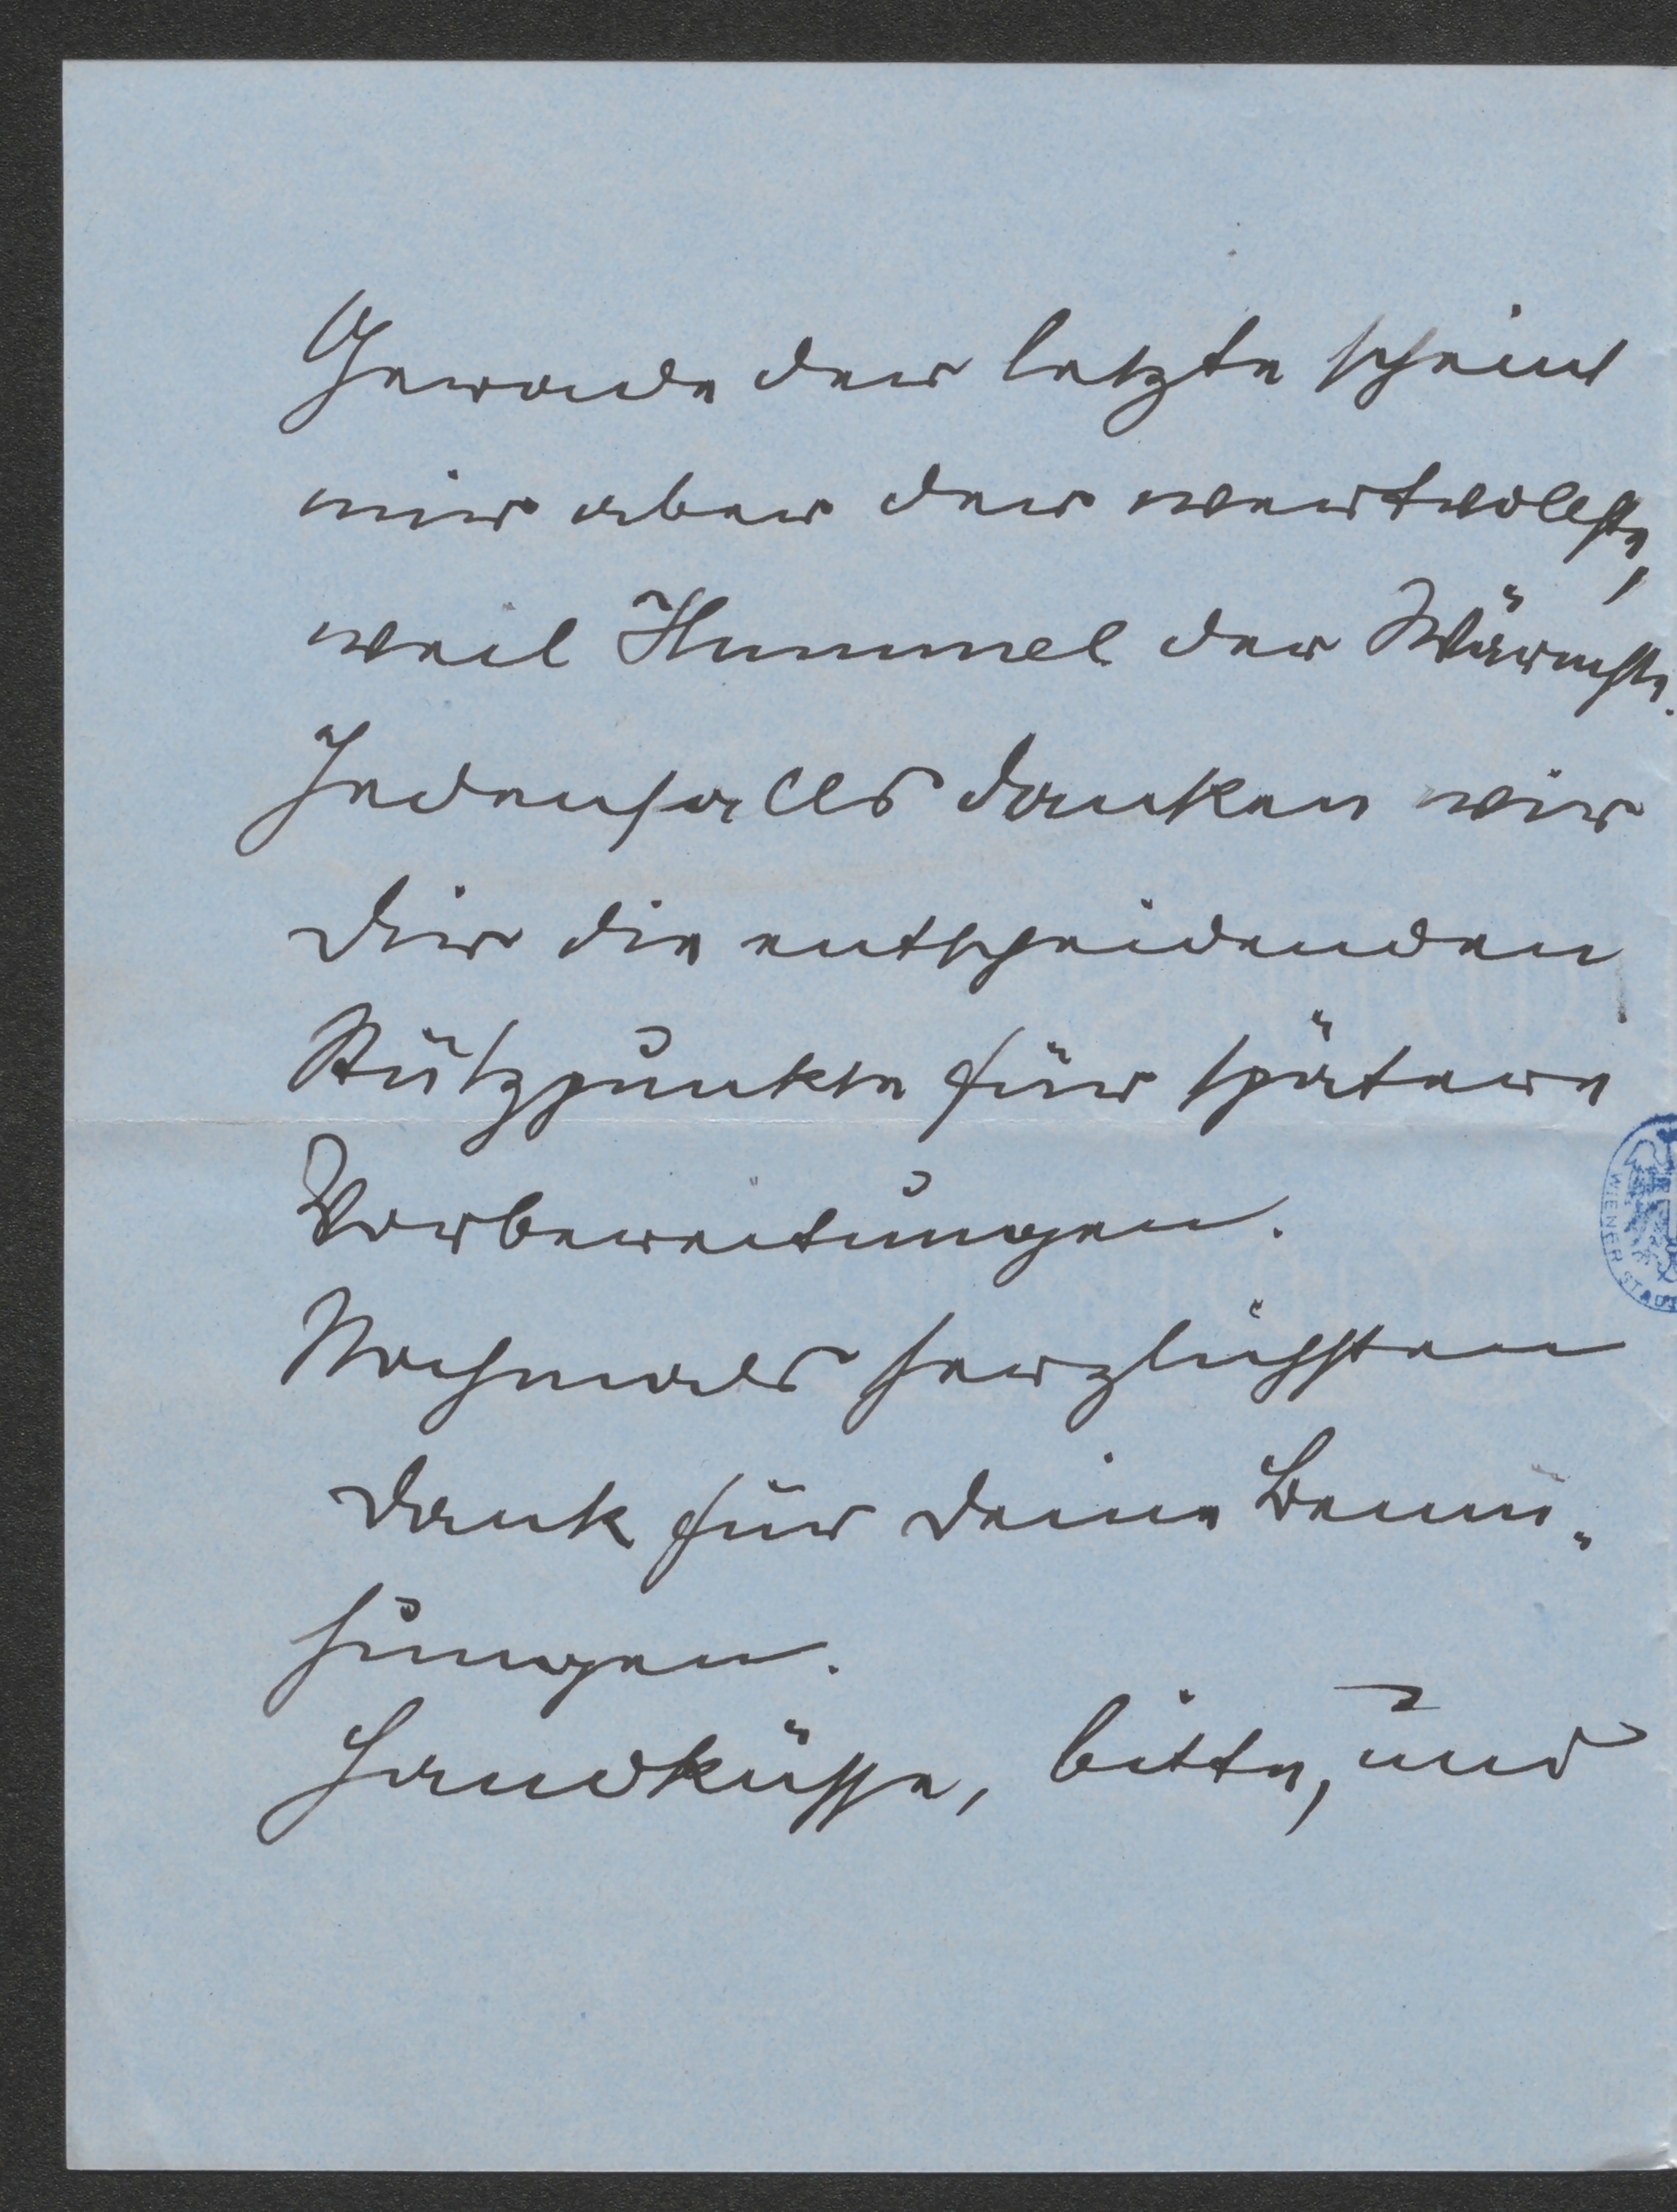 Gerade der letzte scheint
mir aber der wertvollste,
weil Hummel der Wärmste.
Jedenfalls danken wir
Dir die entscheidenden
Stützpunkte für spätere
Vorbereitungen.
Nochmals herzlichsten
Dank für Deine Bemü-
hungen.
Handküsse, bitte, und
WIENER STADT